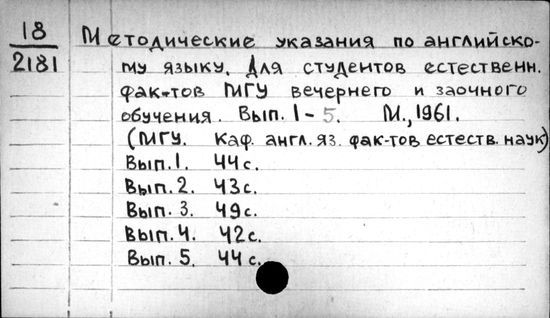 18
2181
Методические указания по английско-
му языку. Для студентов естественн.
фак-тов МГУ вечернего и заочного
обучения. Вып. 1-5. М., 1961.
(МГУ. Каф. англ. яз. фак-тов естеств. наук)
Вып. 1. 44 с.
Вып. 2. 43 с.
Вып. 3. 49 с.
Вып. 4. 42 с.
Вып. 5. 44 с.